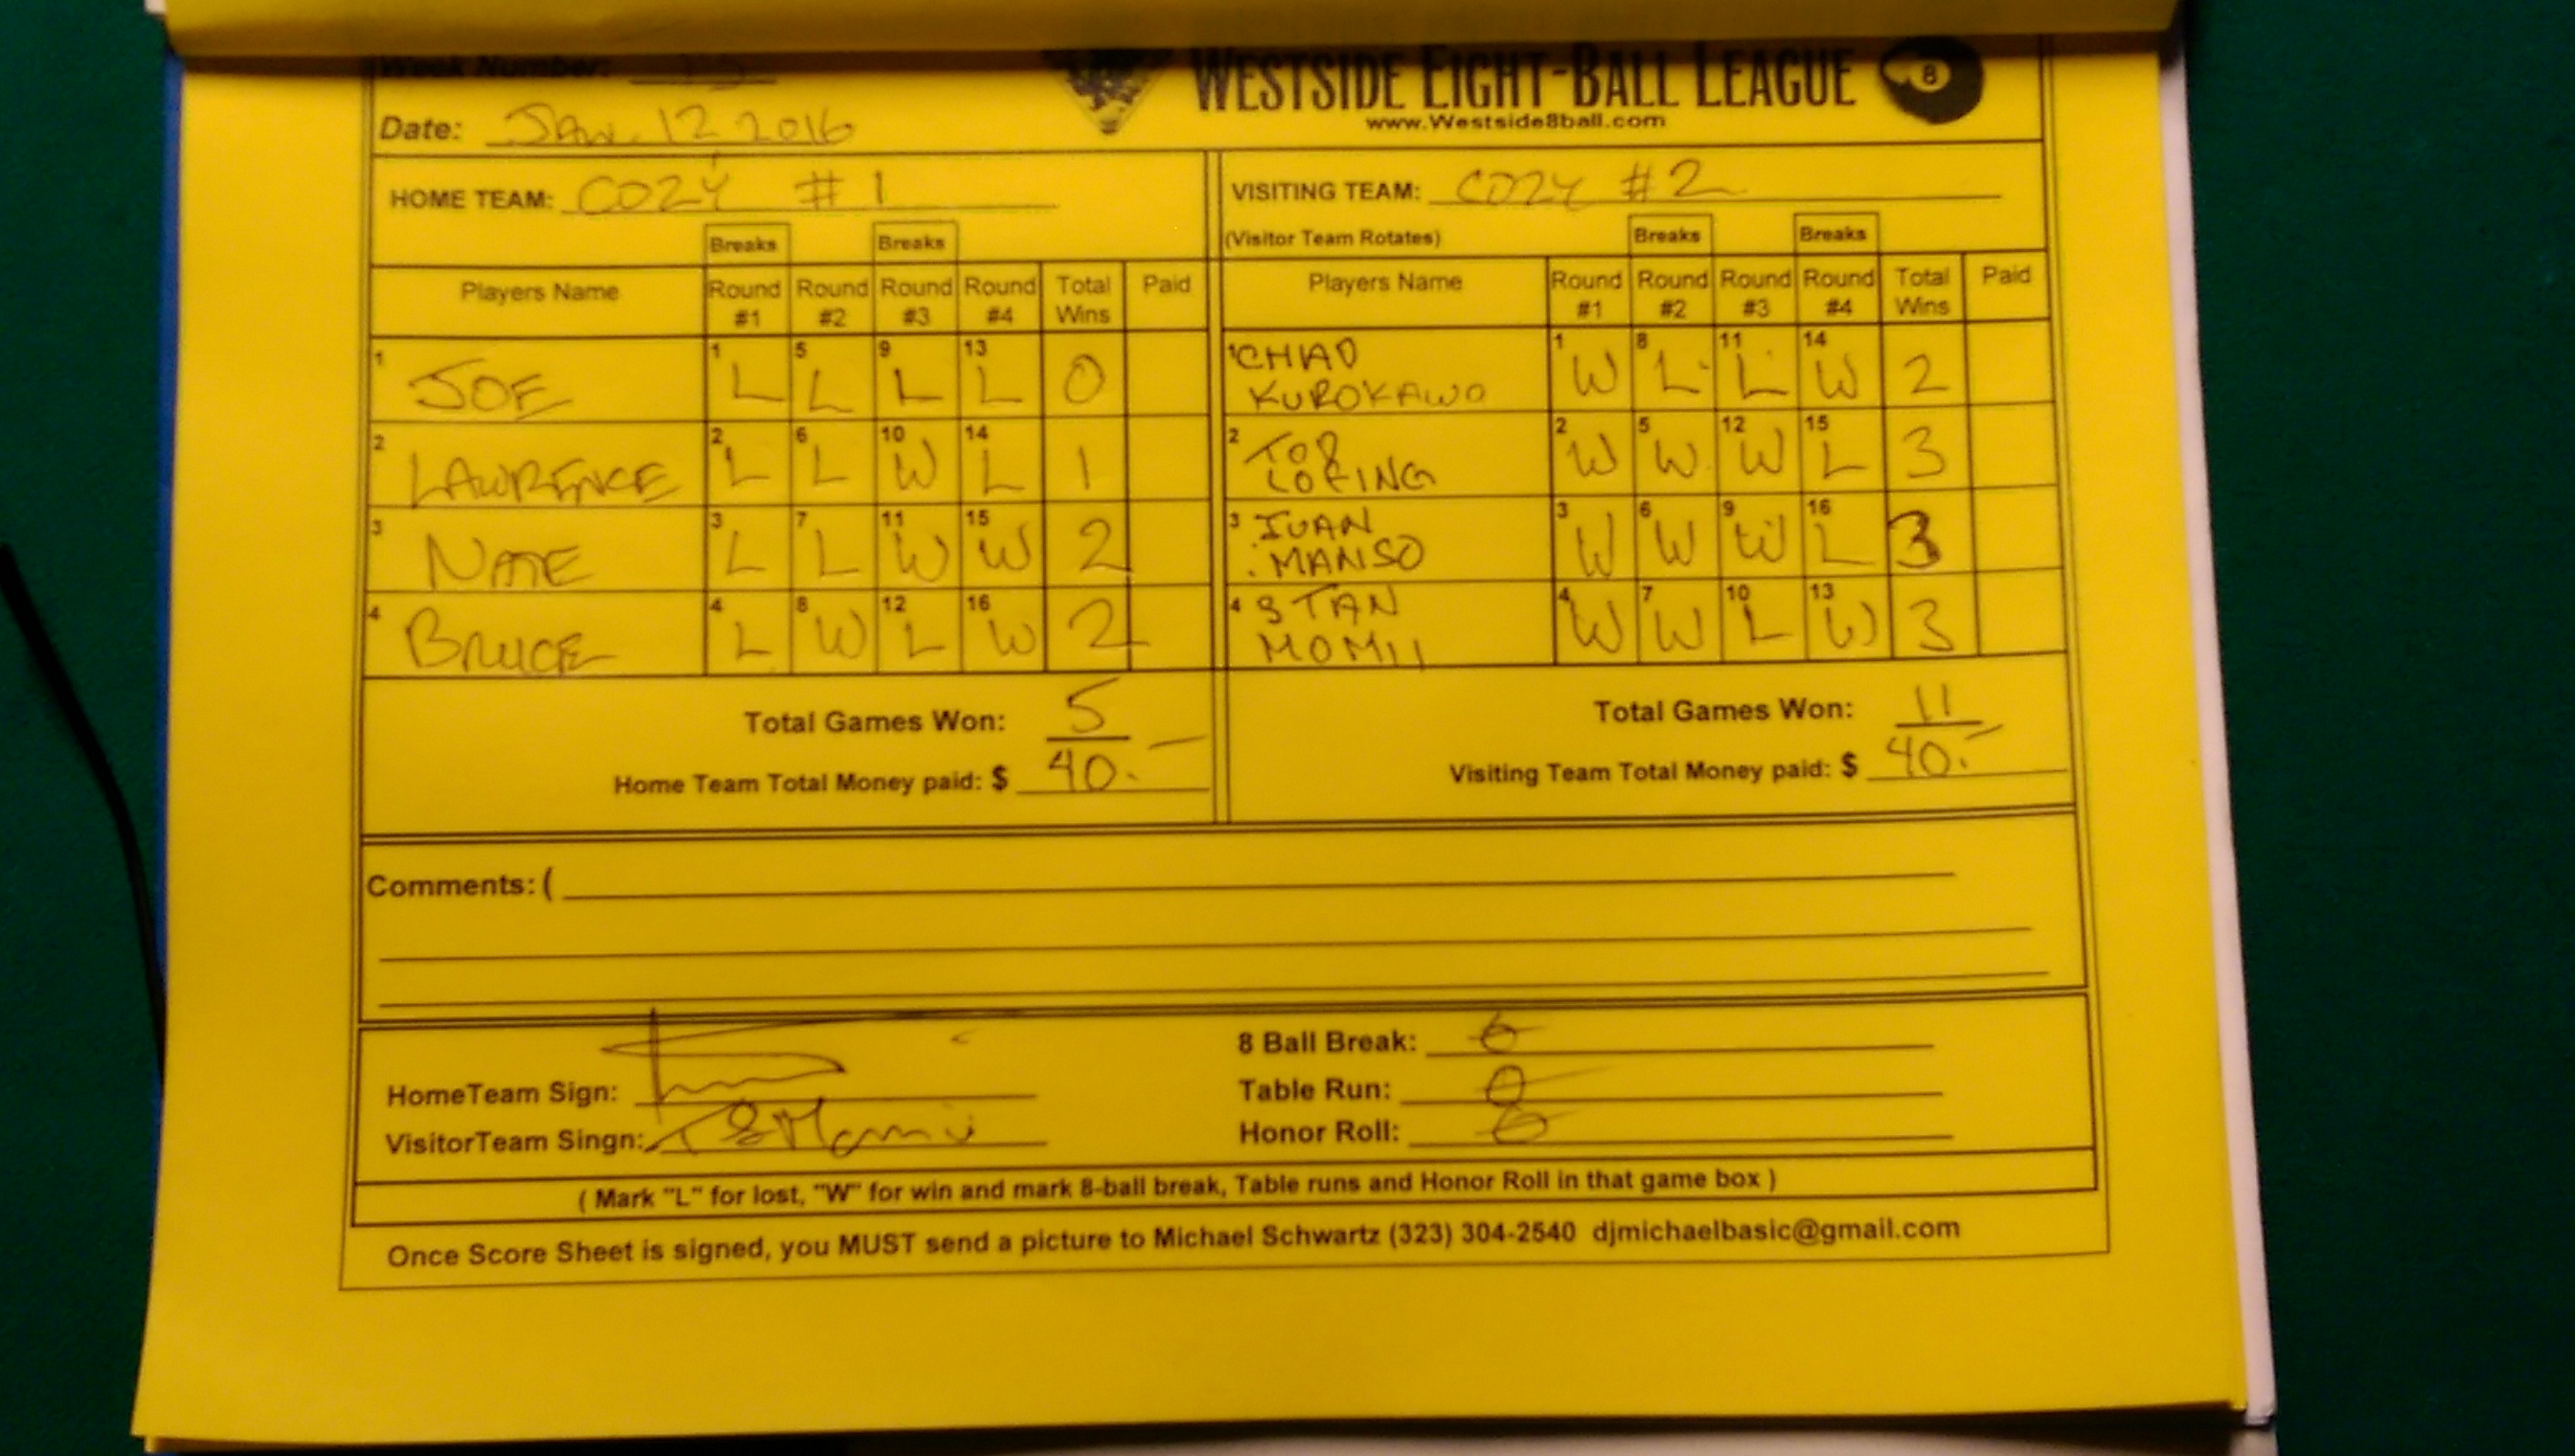 Week Number:
Date: JAN. 12 2016
WESTSIDE EIGHT-BALL LEAGUE 8
www.Westside8ball.com
HOME TEAM: COZY #1 VISITING TEAM: COZY #2
Breaks Breaks (Visitor Team Rotates) Breaks Breaks
Players Name Round #1 Round #2 Round #3 Round #4 Total Wins Paid Players Name Round #1 Round #2 Round #3 Round #4 Total Wins Paid
1 JOE 1 L 5 L 9 L 13 L 0 1 CHAD KUROKAWA 1 W 8 L 11 L 14 W 2
2 LAWRENCE 2 L 6 L 10 W 14 L 1 2 2 W 5 W 12 W 15 L 3
3 NATE 3 L 7 L 11 W 15 W 2 3 MANSO 3 W 6 W 9 W 16 L 3
4 BRUCE 4 L 8 W 12 L 16 W 2 4 STAN MOMII 4 W 7 W 10 L 13 W 3
Total Games Won: 5 Total Games Won: 11
Home Team Total Money paid: $ 40.— Visiting Team Total Money paid: $ 40.—
Comments: (
8 Ball Break: 0
HomeTeam Sign: Table Run: 0
VisitorTeam Singn: Honor Roll: 0
( Mark "L" for lost, "W" for win and mark 8-ball break, Table runs and Honor Roll in that game box )
Once Score Sheet is signed, you MUST send a picture to Michael Schwartz (323) 304-2540 djmichaelbasic@gmail.com